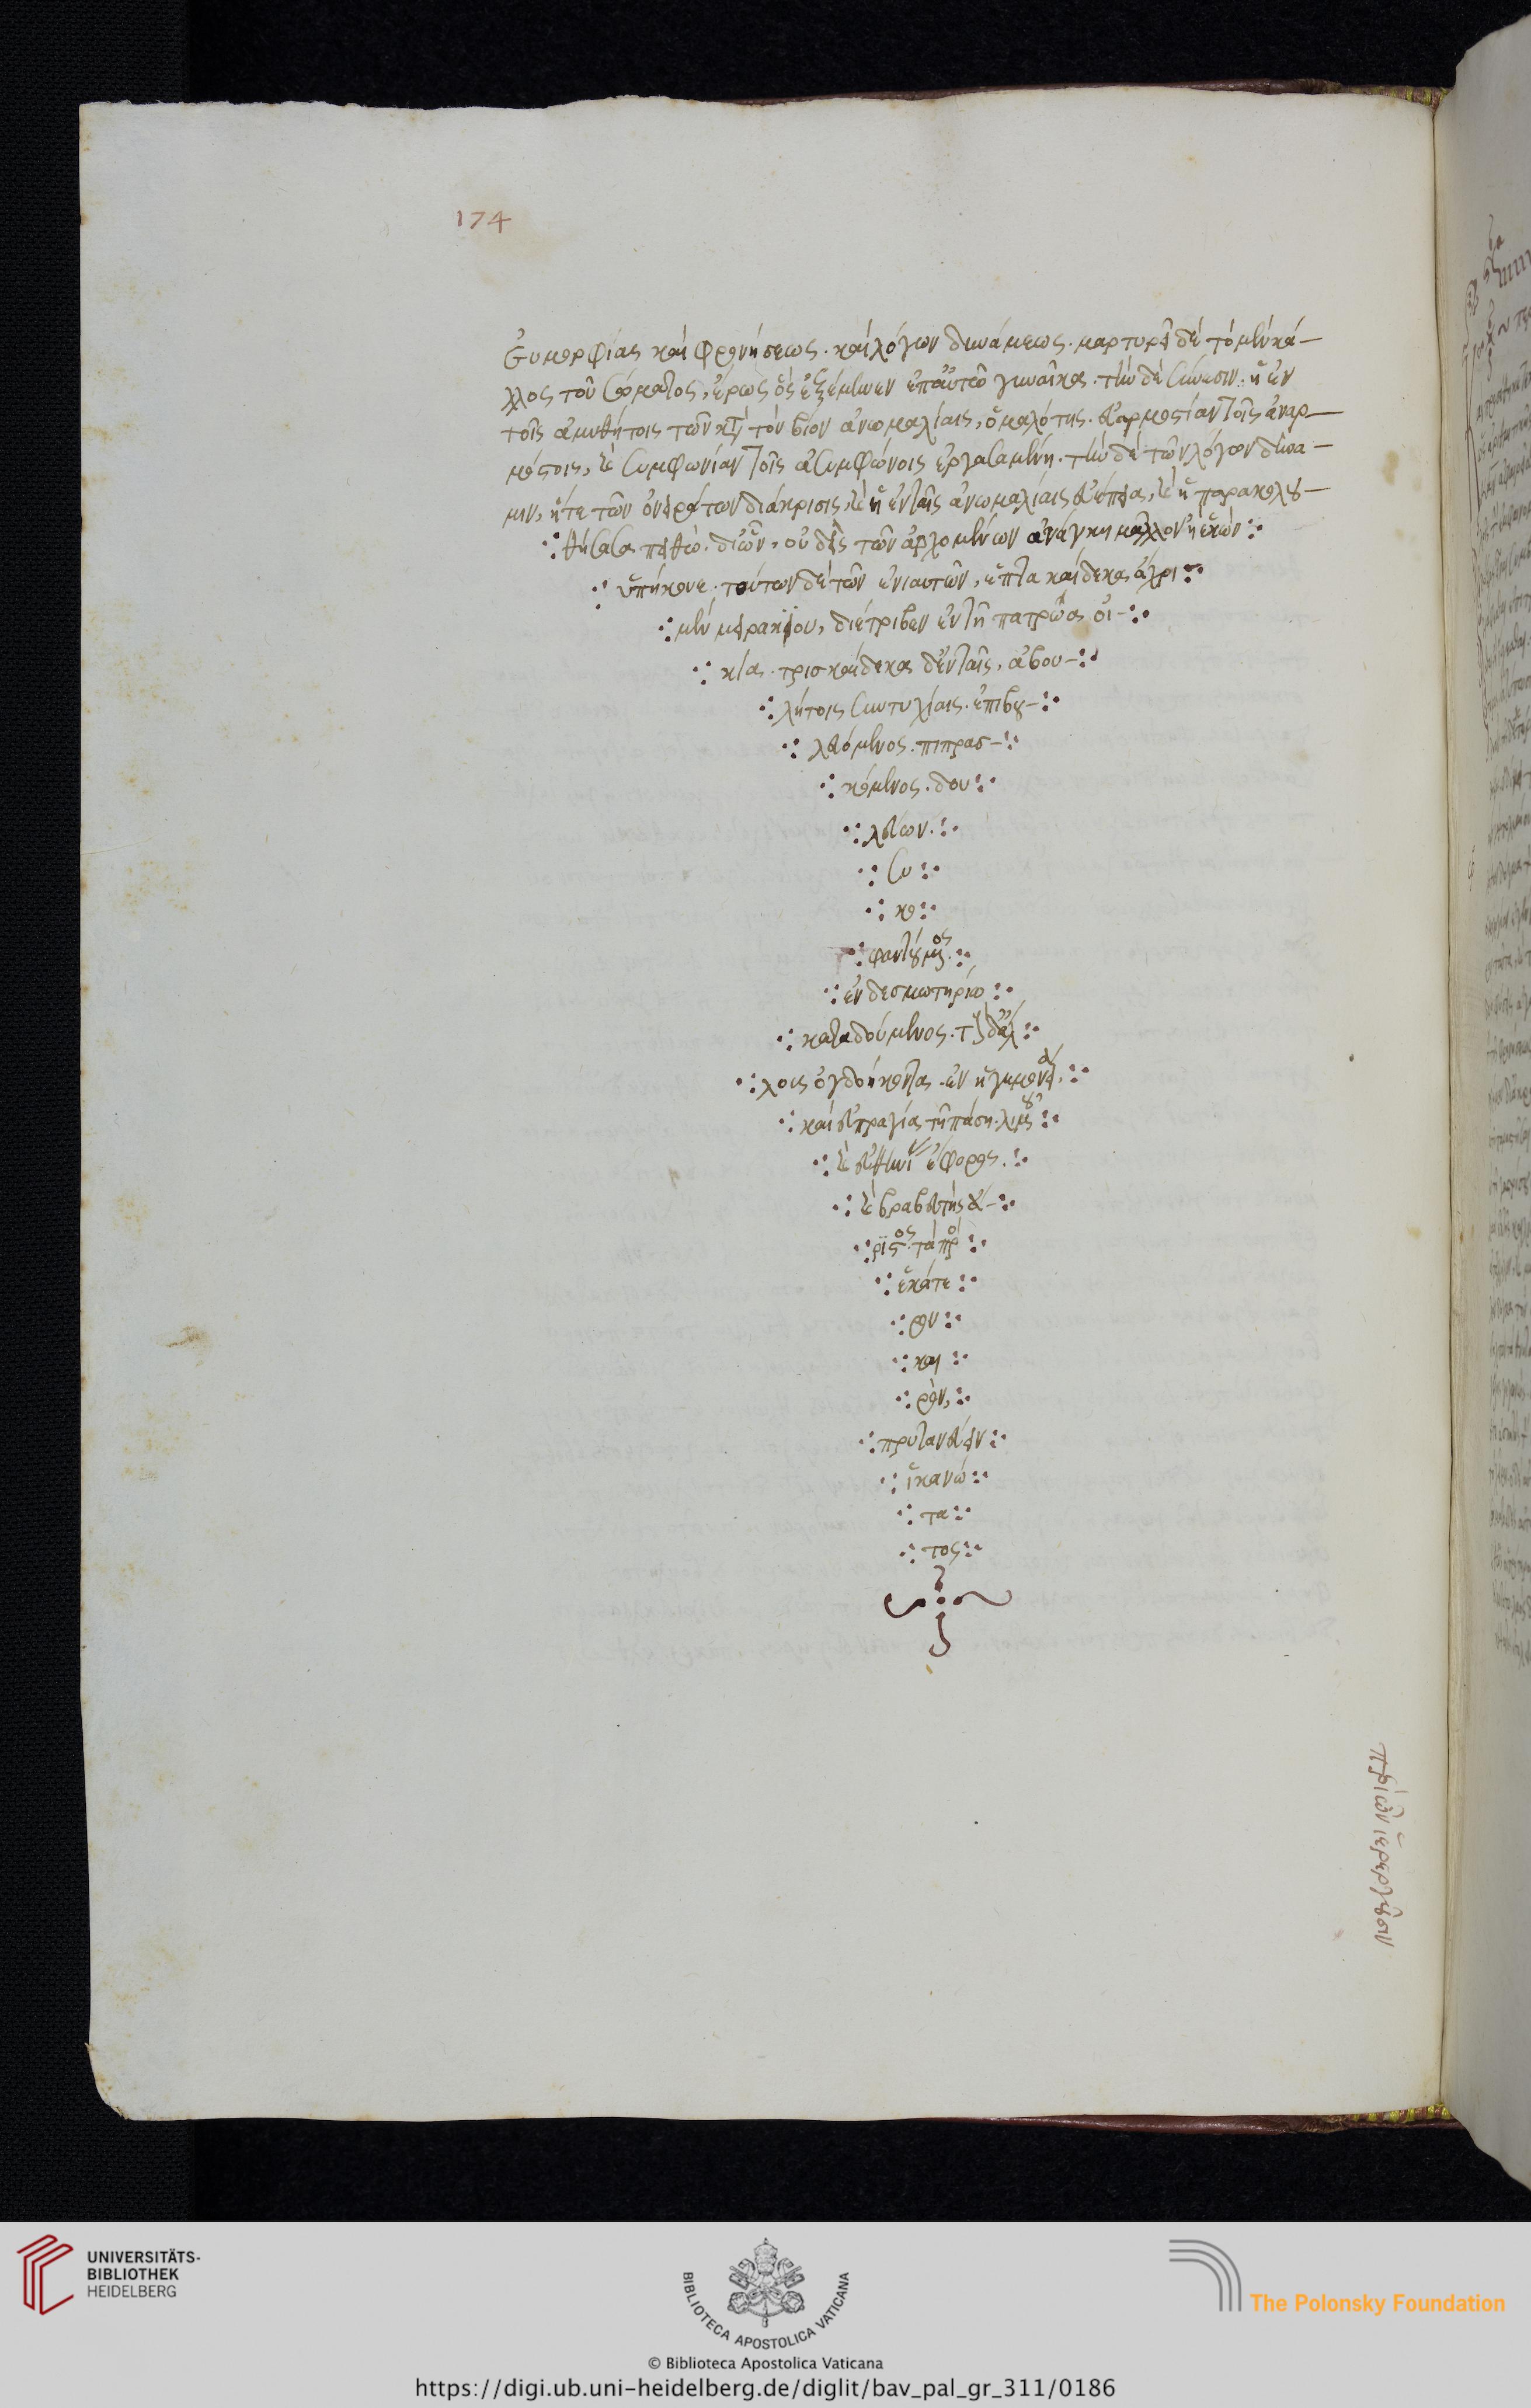 174
Ευμορφίας καὶ φρονήσεως. καὶ λόγων δυνάμεως. μαρτυρεῖ δὲ τὸ μὲν κά-
λλος τοῦ σώματος, ἔρως ὃς ἐξέμηνεν ἐπ' αὐτῷ γυναῖκα. τὴν δὲ σύνεσιν. ἡ ἐν
τοῖς ἀμυθήτοις τῶν κατὰ τὸν βίον ἀνωμαλίαις, ὁμαλότης. εὐαρμοστίαν τοῖς ἀναρ-
μόστοις, καὶ συμφωνίαν τοῖς ἀσυμφώνοις ἐργασαμένη. τὴν δὲ τῶν λόγων δύνα-
μιν, ἥτε τῶν ὀνειράτων διάκρισις, καὶ ἡ ἐν ταῖς ἀνωμαλίαις εὐέπεια, καὶ ἡ παρακολου-
θήσασα πειθώ. δι' ὧν, οὐδεὶς τῶν ἀρχομένων ἀνάγκῃ μᾶλλον ἢ ἑκών
ὑπήκουε. τούτων δὲ τῶν ἐνιαυτῶν, ἑπτακαίδεκα ἄχρι
μὲν μειρακίου, διέτριβεν ἐν τῇ πατρῴα οἰ-
κία. τρισκαίδεκα δ' ἐν ταῖς, ἀβου-
λήτοις συντυχίαις. ἐπιβου-
λευόμενος. πιπρασ-
κόμενος. δου
λεύων.
συ
κο
φαντούμενος.
ἐν δεσμωτηρίῳ
καταδούμενος. τοὺς δ' ἄλ
λους ὀγδοήκοντα. ἐν ἡγεμονίᾳ,
καὶ εὐπραγία τῇ πάσῃ. λιμοῦ
καὶ εὐθηνίας ἔφορος.
καὶ βραβευτὴς ἄ-
ριστος. τὰ πρὸ
ἑκάτε
ρον
και
ρὸν,
πρυτανεύειν
ἱκανώ
τα
τος
© Biblioteca Apostolica Vaticana
UNIVERSITÄTS-
BIBLIOTHEK
HEIDELBERG
BIBLIOTECA APOSTOLICA VATICANA
The Polonsky Foundation
https://digi.ub.uni-heidelberg.de/diglit/bav_pal_gr_311/0186